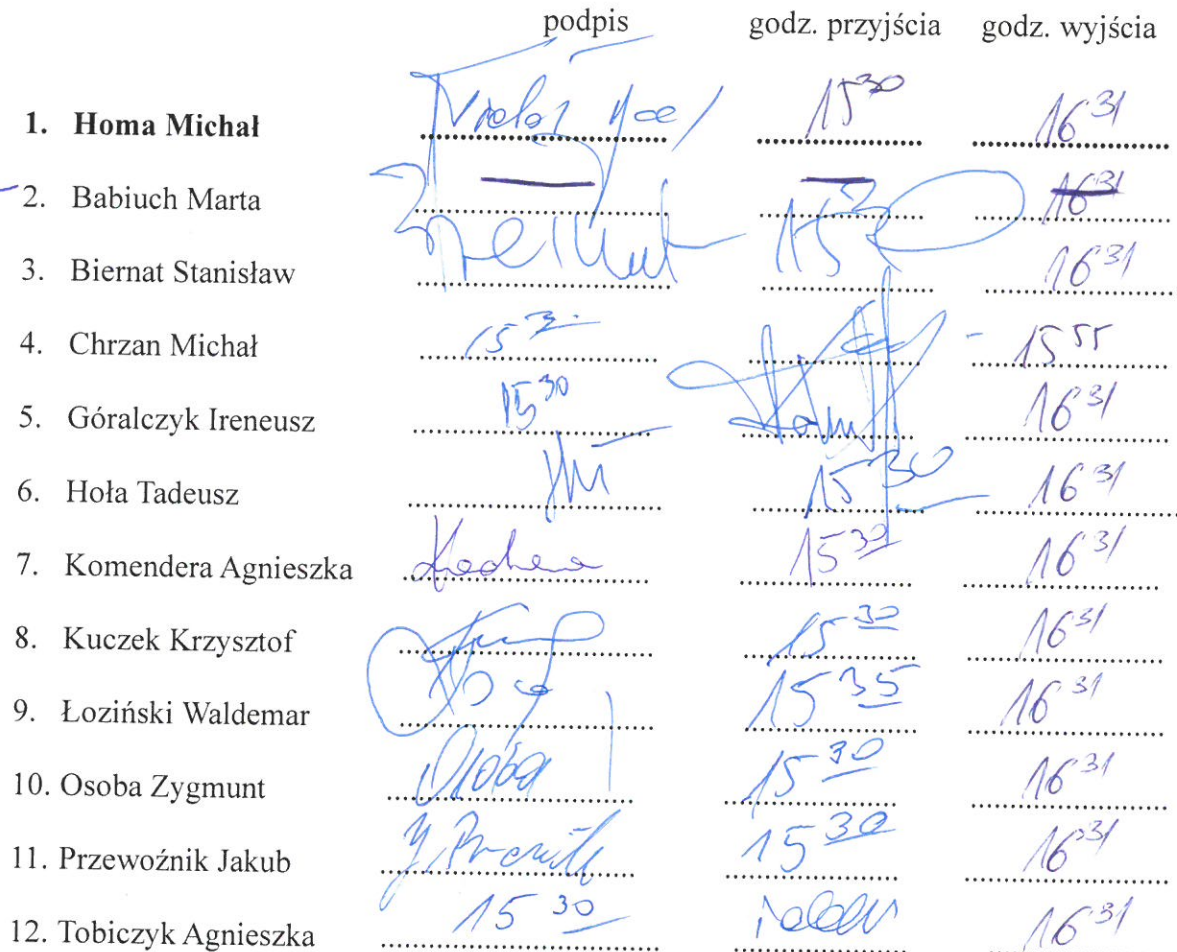 podpis godz. przyjścia godz. wyjścia
1. Homa Michał 15 30 16 31
2. Babiuch Marta — — 16 31
3. Biernat Stanisław 15 30 16 31
4. Chrzan Michał 15 30 15 55
5. Góralczyk Ireneusz 15 30 16 31
6. Hoła Tadeusz 15 30 16 31
7. Komendera Agnieszka 15 30 16 31
8. Kuczek Krzysztof 15 30 16 31
9. Łoziński Waldemar 15 35 16 31
10. Osoba Zygmunt Osoba 15 30 16 31
11. Przewoźnik Jakub 15 30 16 31
12. Tobiczyk Agnieszka 15 30 16 31